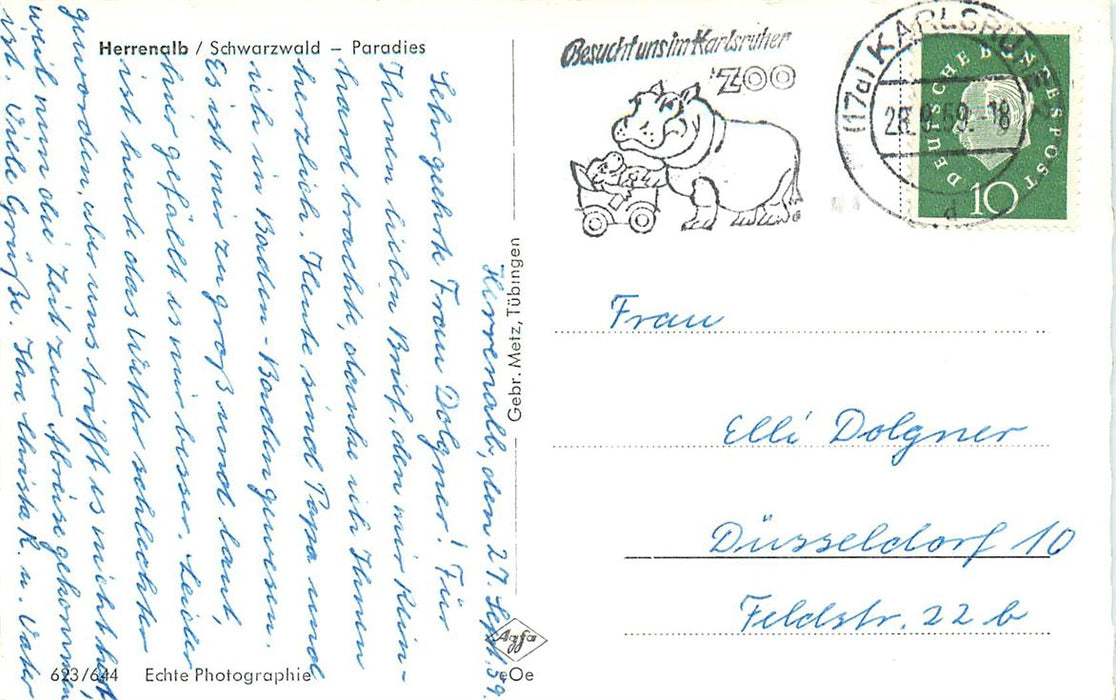 Herrenalb / Schwarzwald – Paradies
Herrenalb, den 27. Sept. 59.
Sehr geehrte Frau Dolgner! Für
Ihren lieben Brief, den mir Rein-
hard brachte, danke ich Ihnen
herzlich. Heute sind Papa und
ich in Baden-Baden gewesen.
Es ist mir zu groß und laut,
hier gefällt es mir besser. Leider
ist heute das Wetter schlechter
geworden, aber uns trifft es nicht hart,
weil nun die Zeit zur Abreise gekommen
ist. Viele Grüße. Ihre Christa R. u. Vater
623/644 Echte Photographie
Gebr. Metz, Tübingen
Agfa
eOe
Besucht uns im Karlsruher
ZOO
(17a) KARLSRUHE
59.-18
d
DEUTSCHE BUNDESPOST
10
Frau
Elli Dolgner
Düsseldorf 10
Feldstr. 22 b